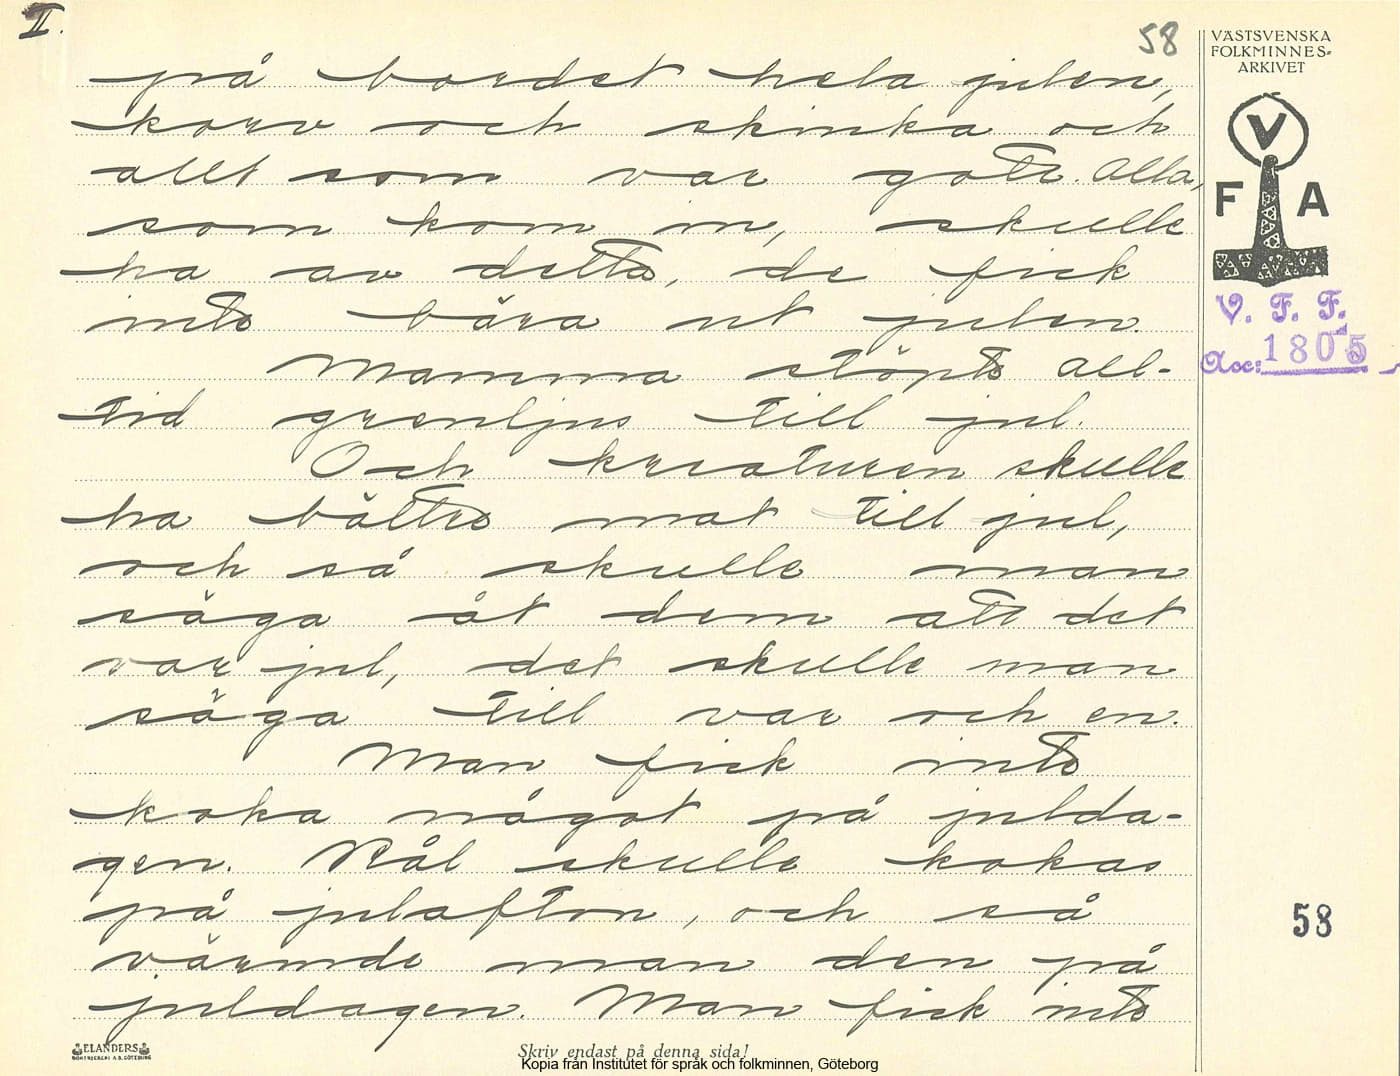 II.
58
VÄSTSVENSKA
FOLKMINNES-
ARKIVET
V
F A
V. F. F.
Acc: 1805
på bordet hela julen,
korv och skinka och
allt som var gott. Alla,
som kom in, skulle
ha av detta, de fick
inte bära ut julen.
Mamma stöpte all-
tid grenljus till jul.
Och kreaturen skulle
ha bättre mat till jul,
och så skulle man
säga åt dem att det
var jul, det skulle man
säga till var och en.
Man fick inte
koka något på julda-
gen. Kål skulle kokas
på julafton, och så
värmde man den på
juldagen. Man fick inte
58
ELANDERS
BOKTRYCKERI A.B. GÖTEBORG
Skriv endast på denna sida!
Kopia från Institutet för språk och folkminnen, Göteborg